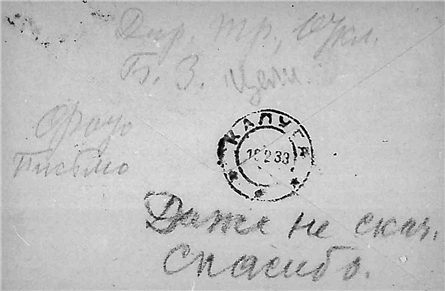 Дир. тр., Откл.
Б. З. Цели.
Фото
письмо
КАЛУГА
18 2 33
Даже не скач.
Спасибо.